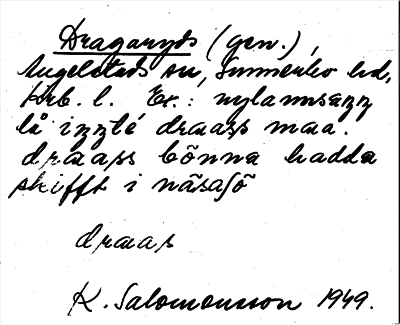 Dragaryds (gen.),
Ängelstads sn, Sunnerbo hd,
Krb. l. Ex.: nylannsazz
lå izzté draass maa.
draass bõnna hadda
skifft i näsasõ
draas
K. Salomonsson 1949.